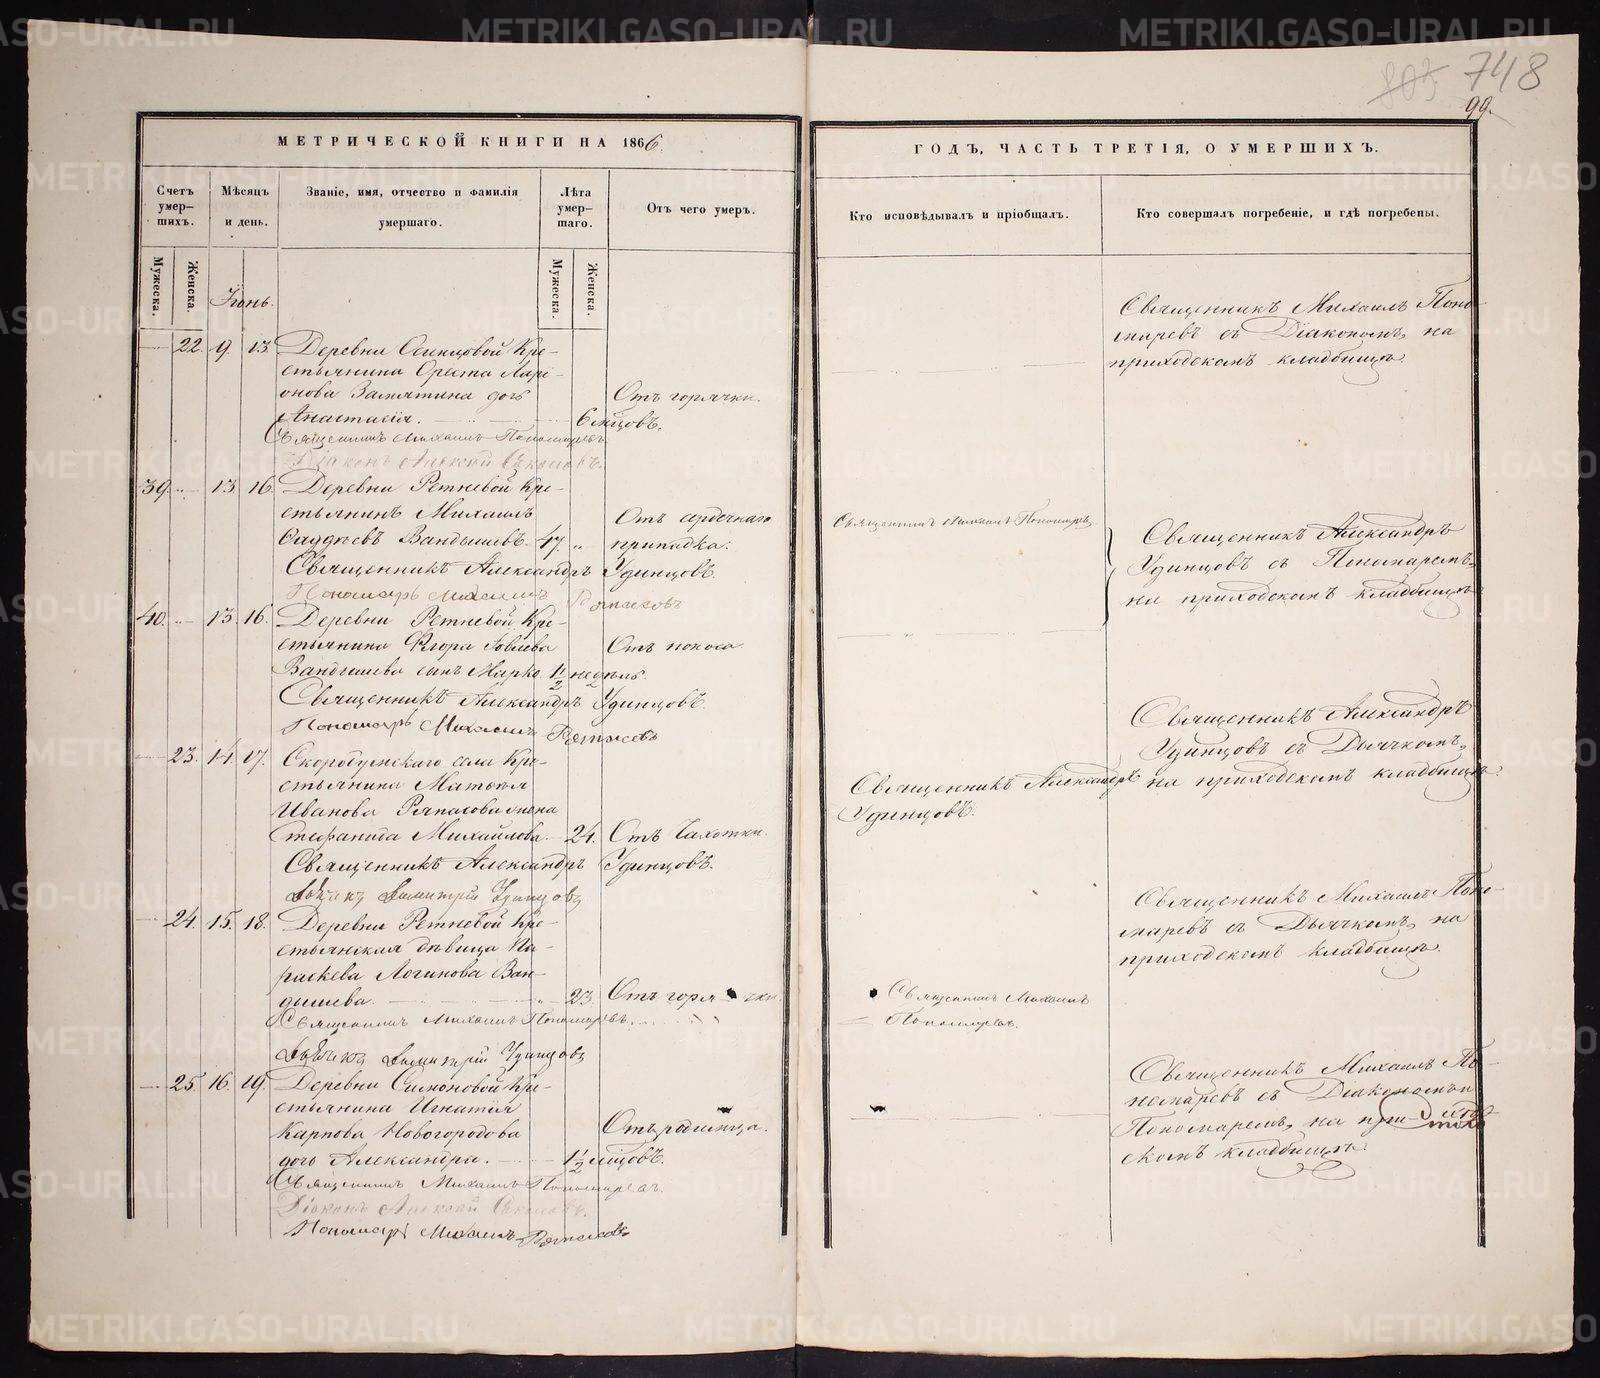 803 748
99.
МЕТРИЧЕСКОЙ КНИГИ НА 1866
Счетъ умер–шихъ.
Мѣсяцъ и день.
Званіе, имя, отчество и фамилія умершаго.
Лѣта умер–шаго.
Отъ чего умеръ.
Мужеска. Женска.
Мужеска. Женска.
Іюнь.
22. 9. 13. Деревни Осинцовой Кре–
стьянина Ореста Лари–
онова Замятина дочь
Отъ горячки.
Анастасія. 6 мѣцовъ.
Священникъ Михаилъ Пономаревъ
Діаконъ Алексѣй
39. 13. 16. Деревни Ретневой Кре–
стьянинъ Михаилъ
Отъ сердечнаго
Фаддѣевъ Вандышевъ 47. „ припадка.
Священникъ Александръ Удинцовъ.
Пономарь Михаилъ
40. 13. 16. Деревни Ретневой Кре–
стьянина Егора Іовлева Отъ поноса
Вандышева сынъ Марко. 1½ недѣль.
Священникъ Александръ Удинцовъ.
Пономарь Михаилъ
23. 14. 17. Скородумскаго села Кре–
стьянина Матвѣя
Иванова Ряпасова жена
Стефанида Михайлова. 24. Отъ Чахотки.
Священникъ Александръ Удинцовъ.
Дьячекъ Димитрій Удинцовъ
24. 15. 18. Деревни Ретневой Кре–
стьянская дѣвица Па–
раскева Логинова Ван–
дышева. „ 23. Отъ горячки.
Священникъ Михаилъ Пономаревъ.
Дьячекъ Димитрій Удинцовъ
25. 16. 19. Деревни Симоновой Кре–
стьянина Игнатія
Карпова Новогородова
Отъ родимца.
дочь Александра. 1½ мѣцовъ.
Священникъ Михаилъ Пономаревъ.
Діаконъ Алексѣй
Пономарь Михаилъ
ГОДЪ, ЧАСТЬ ТРЕТІЯ, О УМЕРШИХЪ.
Кто исповѣдывалъ и пріобщалъ.
Кто совершалъ погребеніе, и гдѣ погребены.
Священникъ Михаилъ Поно–
маревъ съ Діакономъ, на
приходскомъ кладбищѣ.
Священникъ Михаилъ Пономаревъ
Священникъ Александръ
Удинцовъ съ Пономаремъ,
на приходскомъ кладбищѣ
Священникъ Александръ
Удинцовъ съ Дьячкомъ,
на приходскомъ кладбищѣ.
Священникъ Александръ
Удинцовъ.
Священникъ Михаилъ Поно–
маревъ съ Дьячкомъ, на
приходскомъ кладбищѣ.
Священникъ Михаилъ
Пономаревъ.
Священникъ Михаилъ По–
номаревъ съ Діакономъ и
Пономаремъ, на прихо–
скомъ кладбищѣ.
METRIKI.GASO-URAL.RU